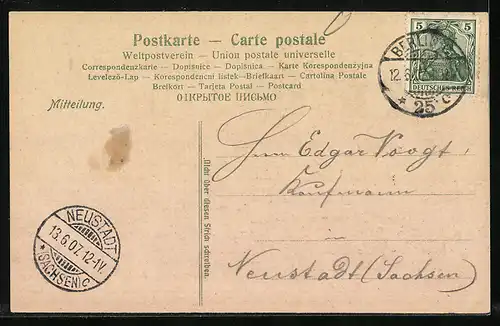 Postkarte – Carte postale
Weltpostverein – Union postale universelle
Correspondenzkarte – Dopisnice – Dopisnica – Karte Korespondenzyjna
Levelező-Lap – Korespondenčni listek – Briefkaart – Cartolina Postale
Brefkort – Tarjeta Postal – Postcard
ОТКРЫТОЕ ПИСЬМО
Mitteilung.
5 5
DEUTSCHES REICH
BERLIN
12.6.
* 25 c
Herrn Edgar Voogt,
Kaufmann
Neustadt (Sachsen)
Nicht über diesen Strich schreiben.
NEUSTADT
13.6.07. 12-1V.
* (SACHSEN) C